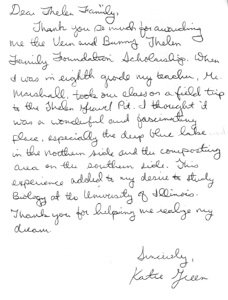 Dear Thelen Family,
Thank you so much for awarding
me the Vern and Bunny Thelen
Family Foundation Scholarship. When
I was in eighth grade my teacher, Mr.
Marshall, took our class on a field trip
to the Thelen Gravel Pit. I thought it
was a wonderful and fascinating
place, especially the deep blue lake
in the northern side and the composting
area on the southern side. This
experience added to my desire to study
Biology at the University of Illinois.
Thank you for helping me realize my
dream.
Sincerely,
Katie Green